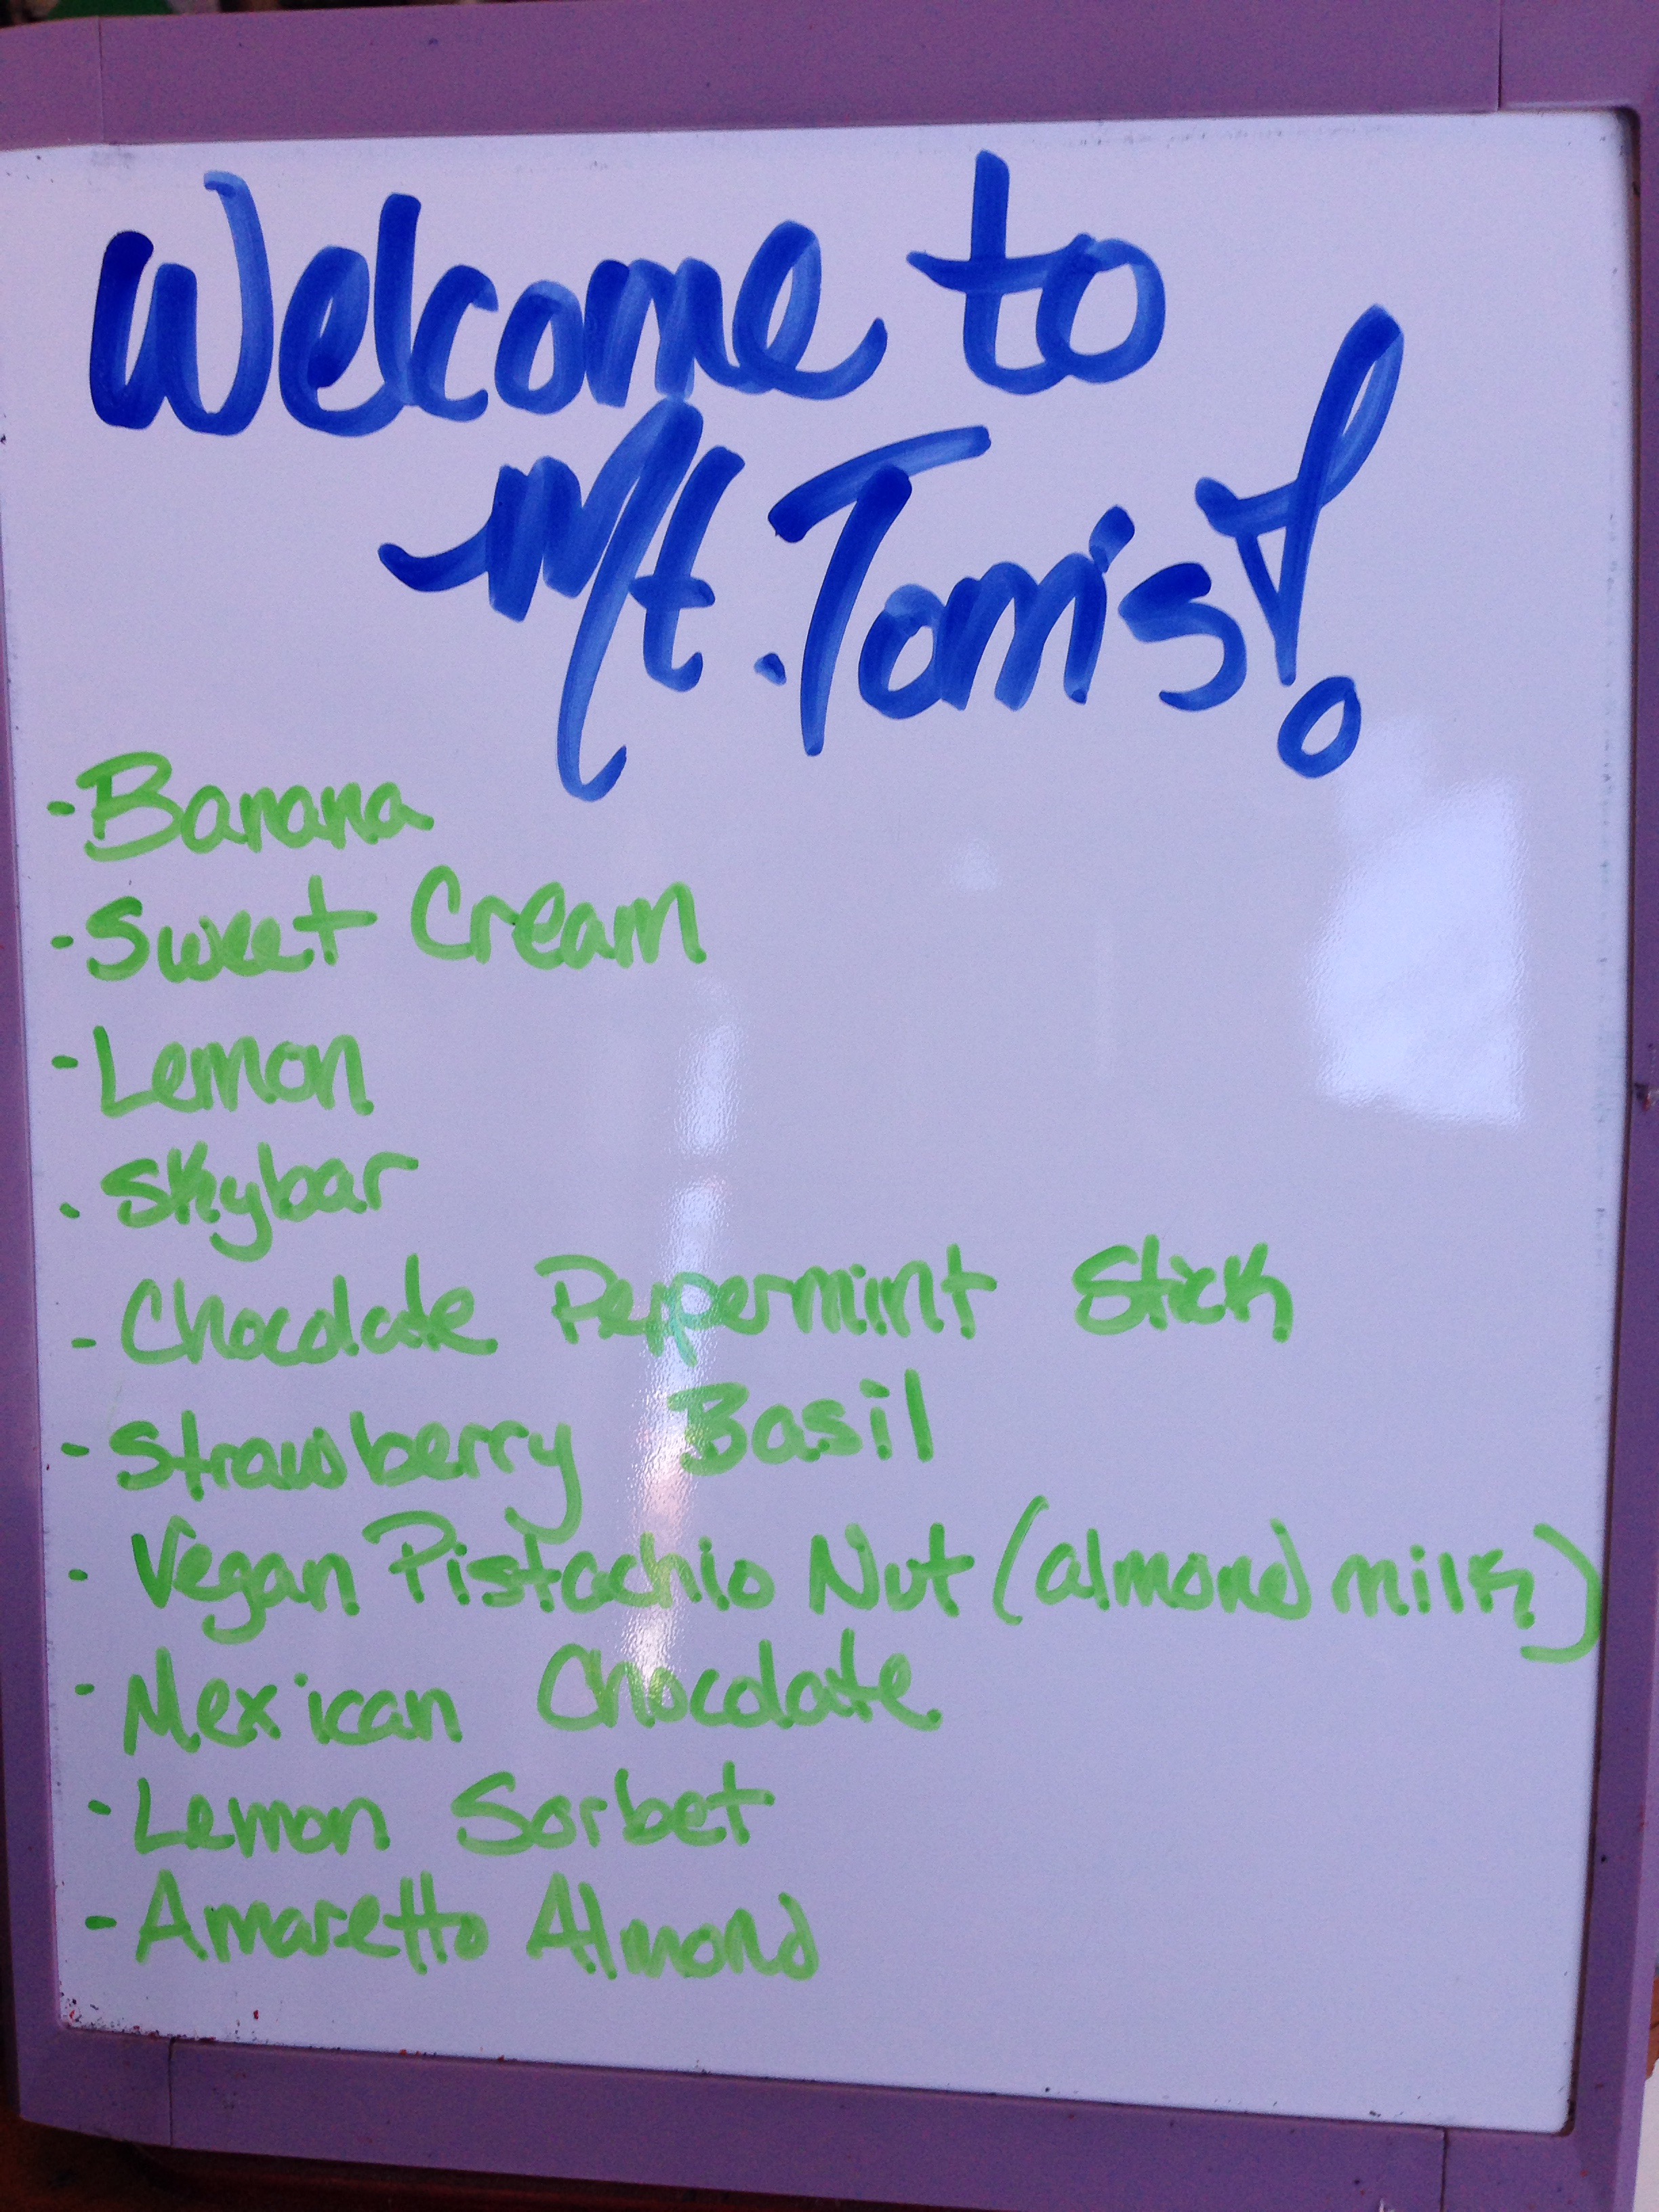 Welcome to
Mt. Tom's!
- Banana
- Sweet Cream
- Lemon
- Skybar
- Chocolate Peppermint Stick
- Strawberry Basil
- Vegan Pistachio Nut (almond milk)
- Mexican Chocolate
- Lemon Sorbet
- Amaretto Almond